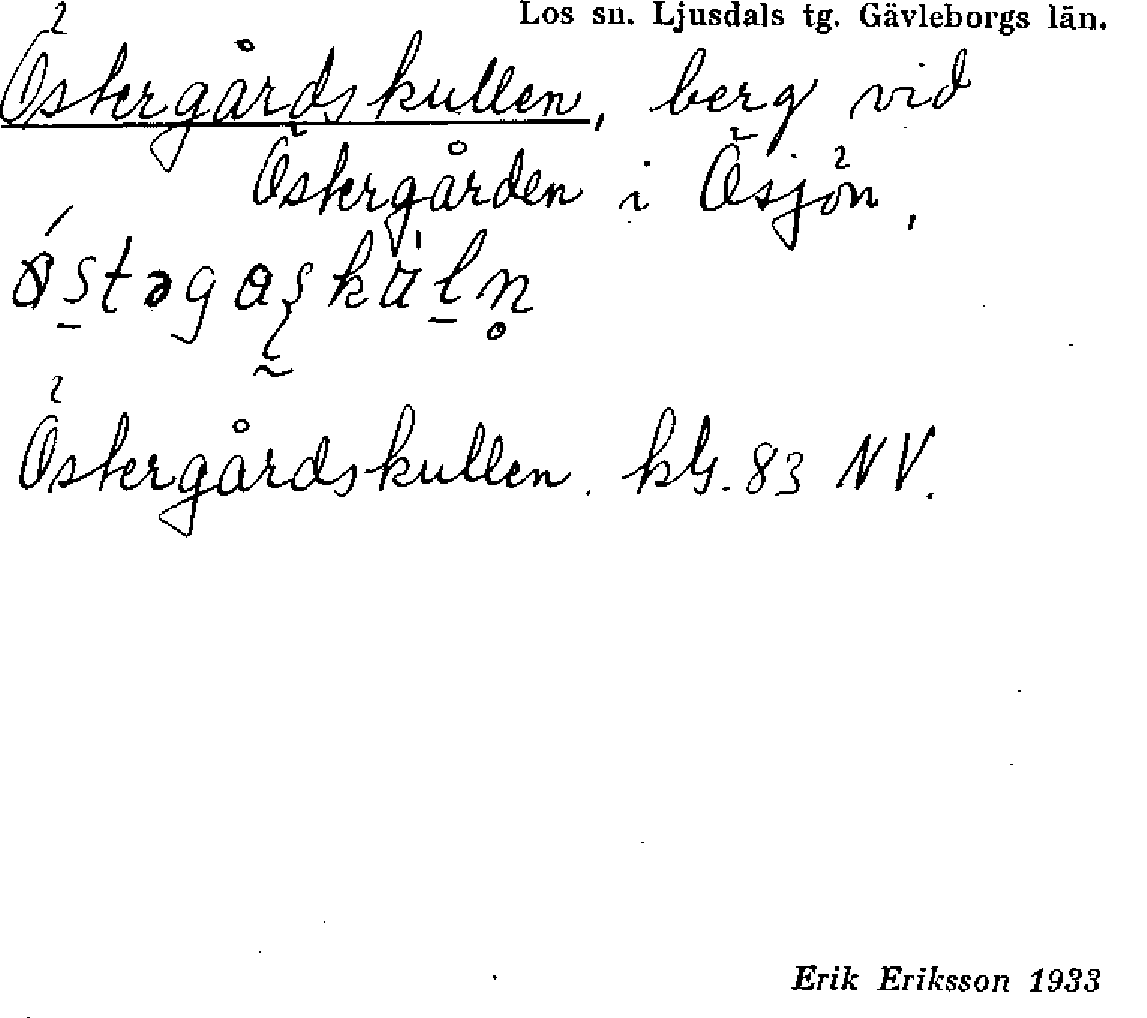 Los sn. Ljusdals tg. Gävleborgs län.
Östergårdskullen, berg vid
Östergården i Ösjön,
Östergårdskullen. kbl. 83 NV.
Erik Eriksson 1933